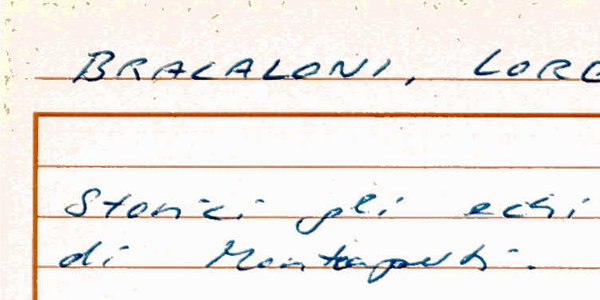 BRACALONI, LORE
Storici gli echi
di Montaperti.